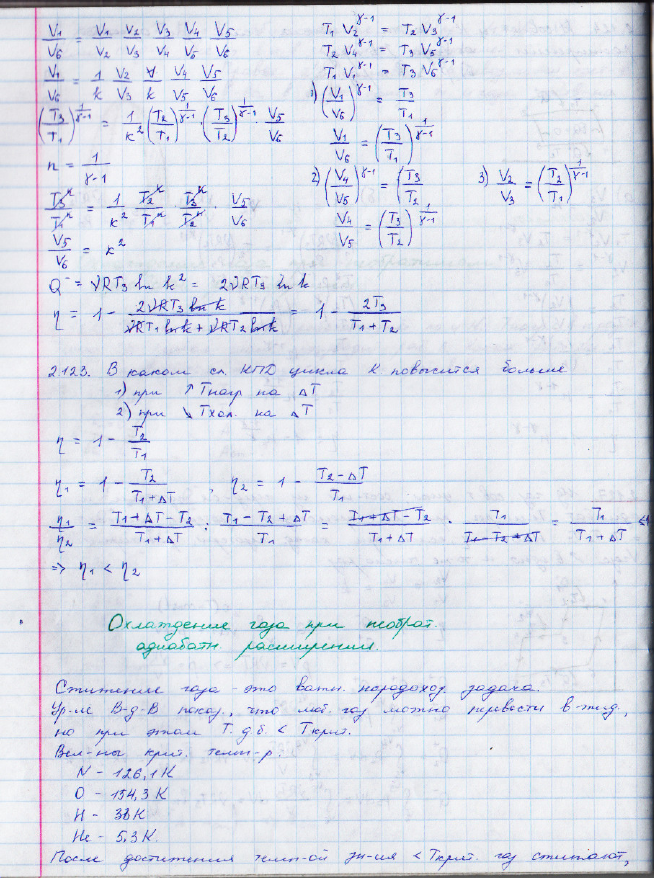 V₁/V₆ = V₁/V₂ V₂/V₃ V₃/V₄ V₄/V₅ V₅/V₆
V₁/V₆ = 1/k V₂/V₃ 1/k V₄/V₅ V₅/V₆
(T₃/T₁)^(1/(γ-1)) = 1/k² (T₂/T₁)^(1/(γ-1)) · (T₃/T₂)^(1/(γ-1)) · V₅/V₆
n = 1/(γ-1)
T₃ⁿ/T₁ⁿ = 1/k² T₂ⁿ/T₁ⁿ T₃ⁿ/T₂ⁿ · V₅/V₆
V₅/V₆ = k²
T₁ V₂^(γ-1) = T₂ V₃^(γ-1)
T₂ V₄^(γ-1) = T₃ V₅^(γ-1)
T₁ V₁^(γ-1) = T₃ V₆^(γ-1)
1) (V₁/V₆)^(γ-1) = T₃/T₁
V₁/V₆ = (T₃/T₁)^(1/(γ-1))
2) (V₄/V₅)^(γ-1) = (T₃/T₂
V₄/V₅ = (T₃/T₂)^(1/(γ-1))
3) V₂/V₃ = (T₂/T₁)^(1/(γ-1))
Q⁻ = νRT₃ ln k² = 2νRT₃ ln k
η = 1 - 2νRT₃ ln k / (νRT₁ ln k + νRT₂ ln k) = 1 - 2T₃/(T₁+T₂)
2.123. В каком сл. КПД цикла К повысится больше
1) при ↑ Tнагр на ΔT
2) при ↘ Tхол. на ΔT
η = 1 - T₂/T₁
η₁ = 1 - T₂/(T₁+ΔT) , η₂ = 1 - (T₂-ΔT)/T₁
η₁/η₂ = (T₁+ΔT-T₂)/(T₁+ΔT) : (T₁-T₂+ΔT)/T₁ = (T₁+ΔT-T₂)/(T₁+ΔT) · T₁/(T₁-T₂+ΔT) = T₁/(T₁+ΔT) <1
=> η₁ < η₂
Охлаждение газа при необрат.
адиабатн расширении.
Сжижение газа - это важн. задача.
Ур-ие В-д-В показ., что люб. газ можно перевести в жид.,
но при этом T. д.б. < Tкрит.
Вел-ны крит. темп-р.
N - 126,1 К
O - 154,3 К
H - 33 К
He - 5,3 К.
После достижения темп-ой < Tкрит. газ сжимают,